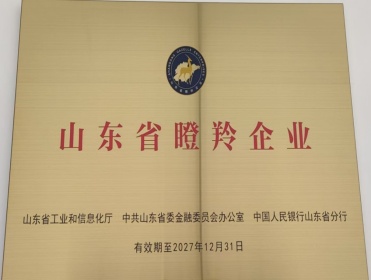 山东省瞪羚企业
山东省工业和信息化厅 中共山东省委金融委员会办公室 中国人民银行山东省分行
有效期至2027年12月31日